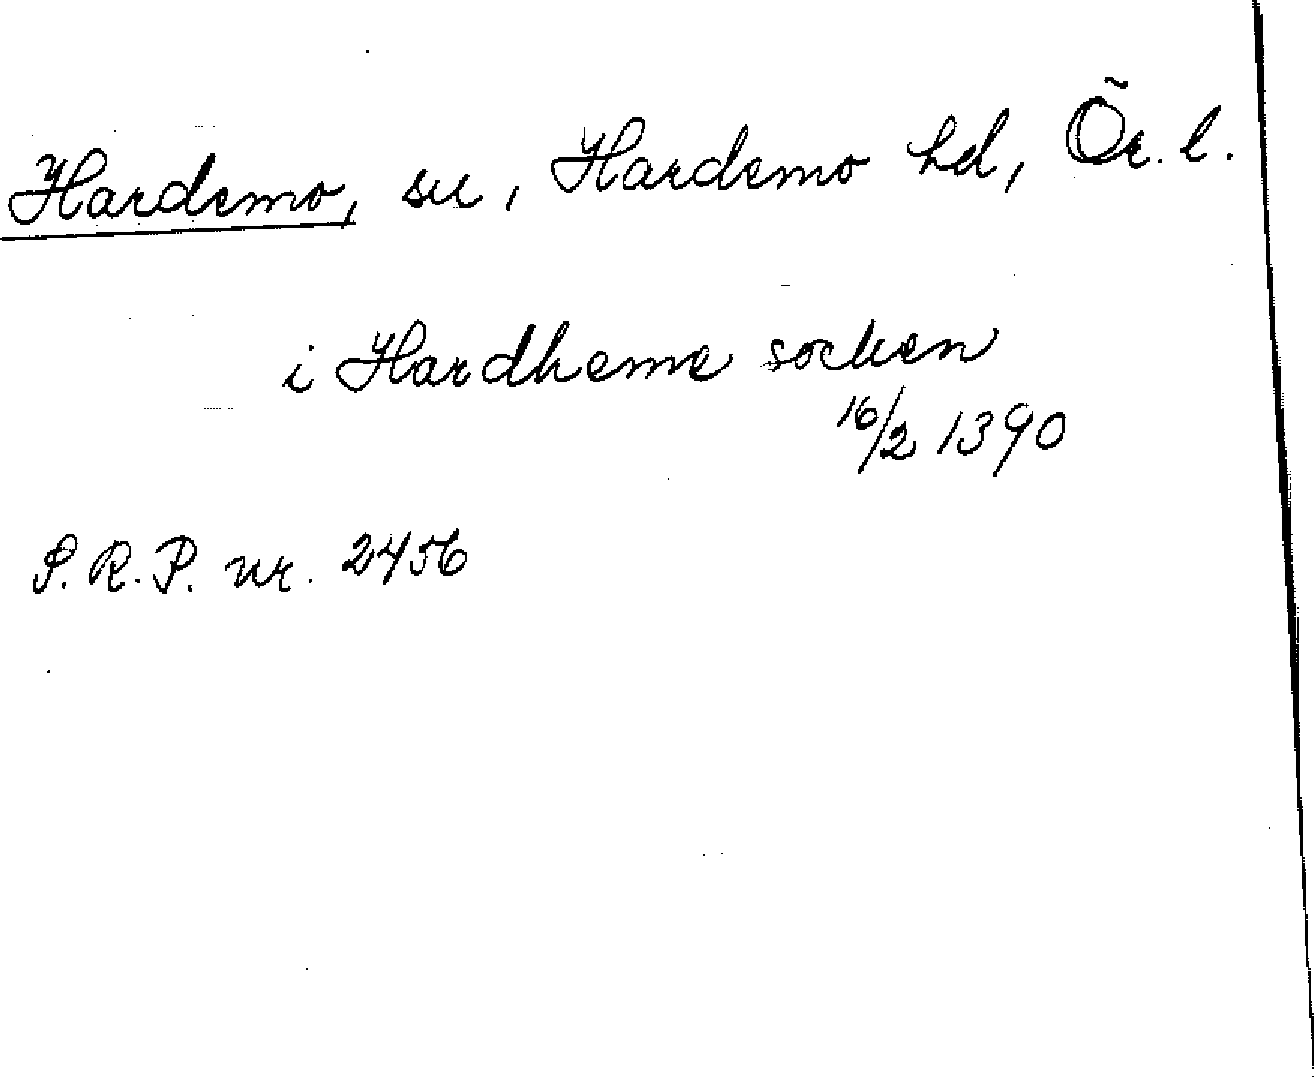 Hardemo, sn, Hardemo hd, Ör. l.
i Hardheme socken
16/2 1390
S.R.P. nr. 2456